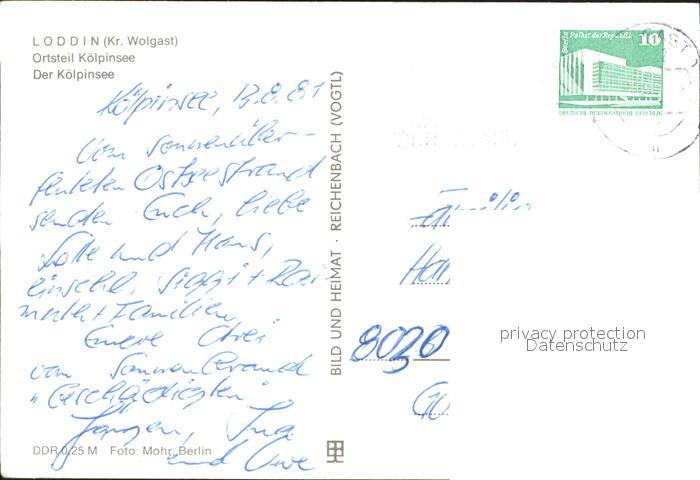 LODDIN (Kr. Wolgast)
Ortsteil Kölpinsee
Der Kölpinsee
Kölpinsee, 13.8.81
Vom sonnenüber-
fluteten Ostseestrand
senden Euch, liebe
Lotte und Hans,
einschl. Siggi +
+ Familien,
Eure drei
vom Sonnenbrand
"Geschädigten"
Jürgen, Inga
und Uwe
DDR 0,25 M Foto: Mohr, Berlin
BILD UND HEIMAT · REICHENBACH (VOGTL)
Berlin Palast der Republik 10
DEUTSCHE DEMOKRATISCHE REPUBLIK
8020
privacy protection
Datenschutz